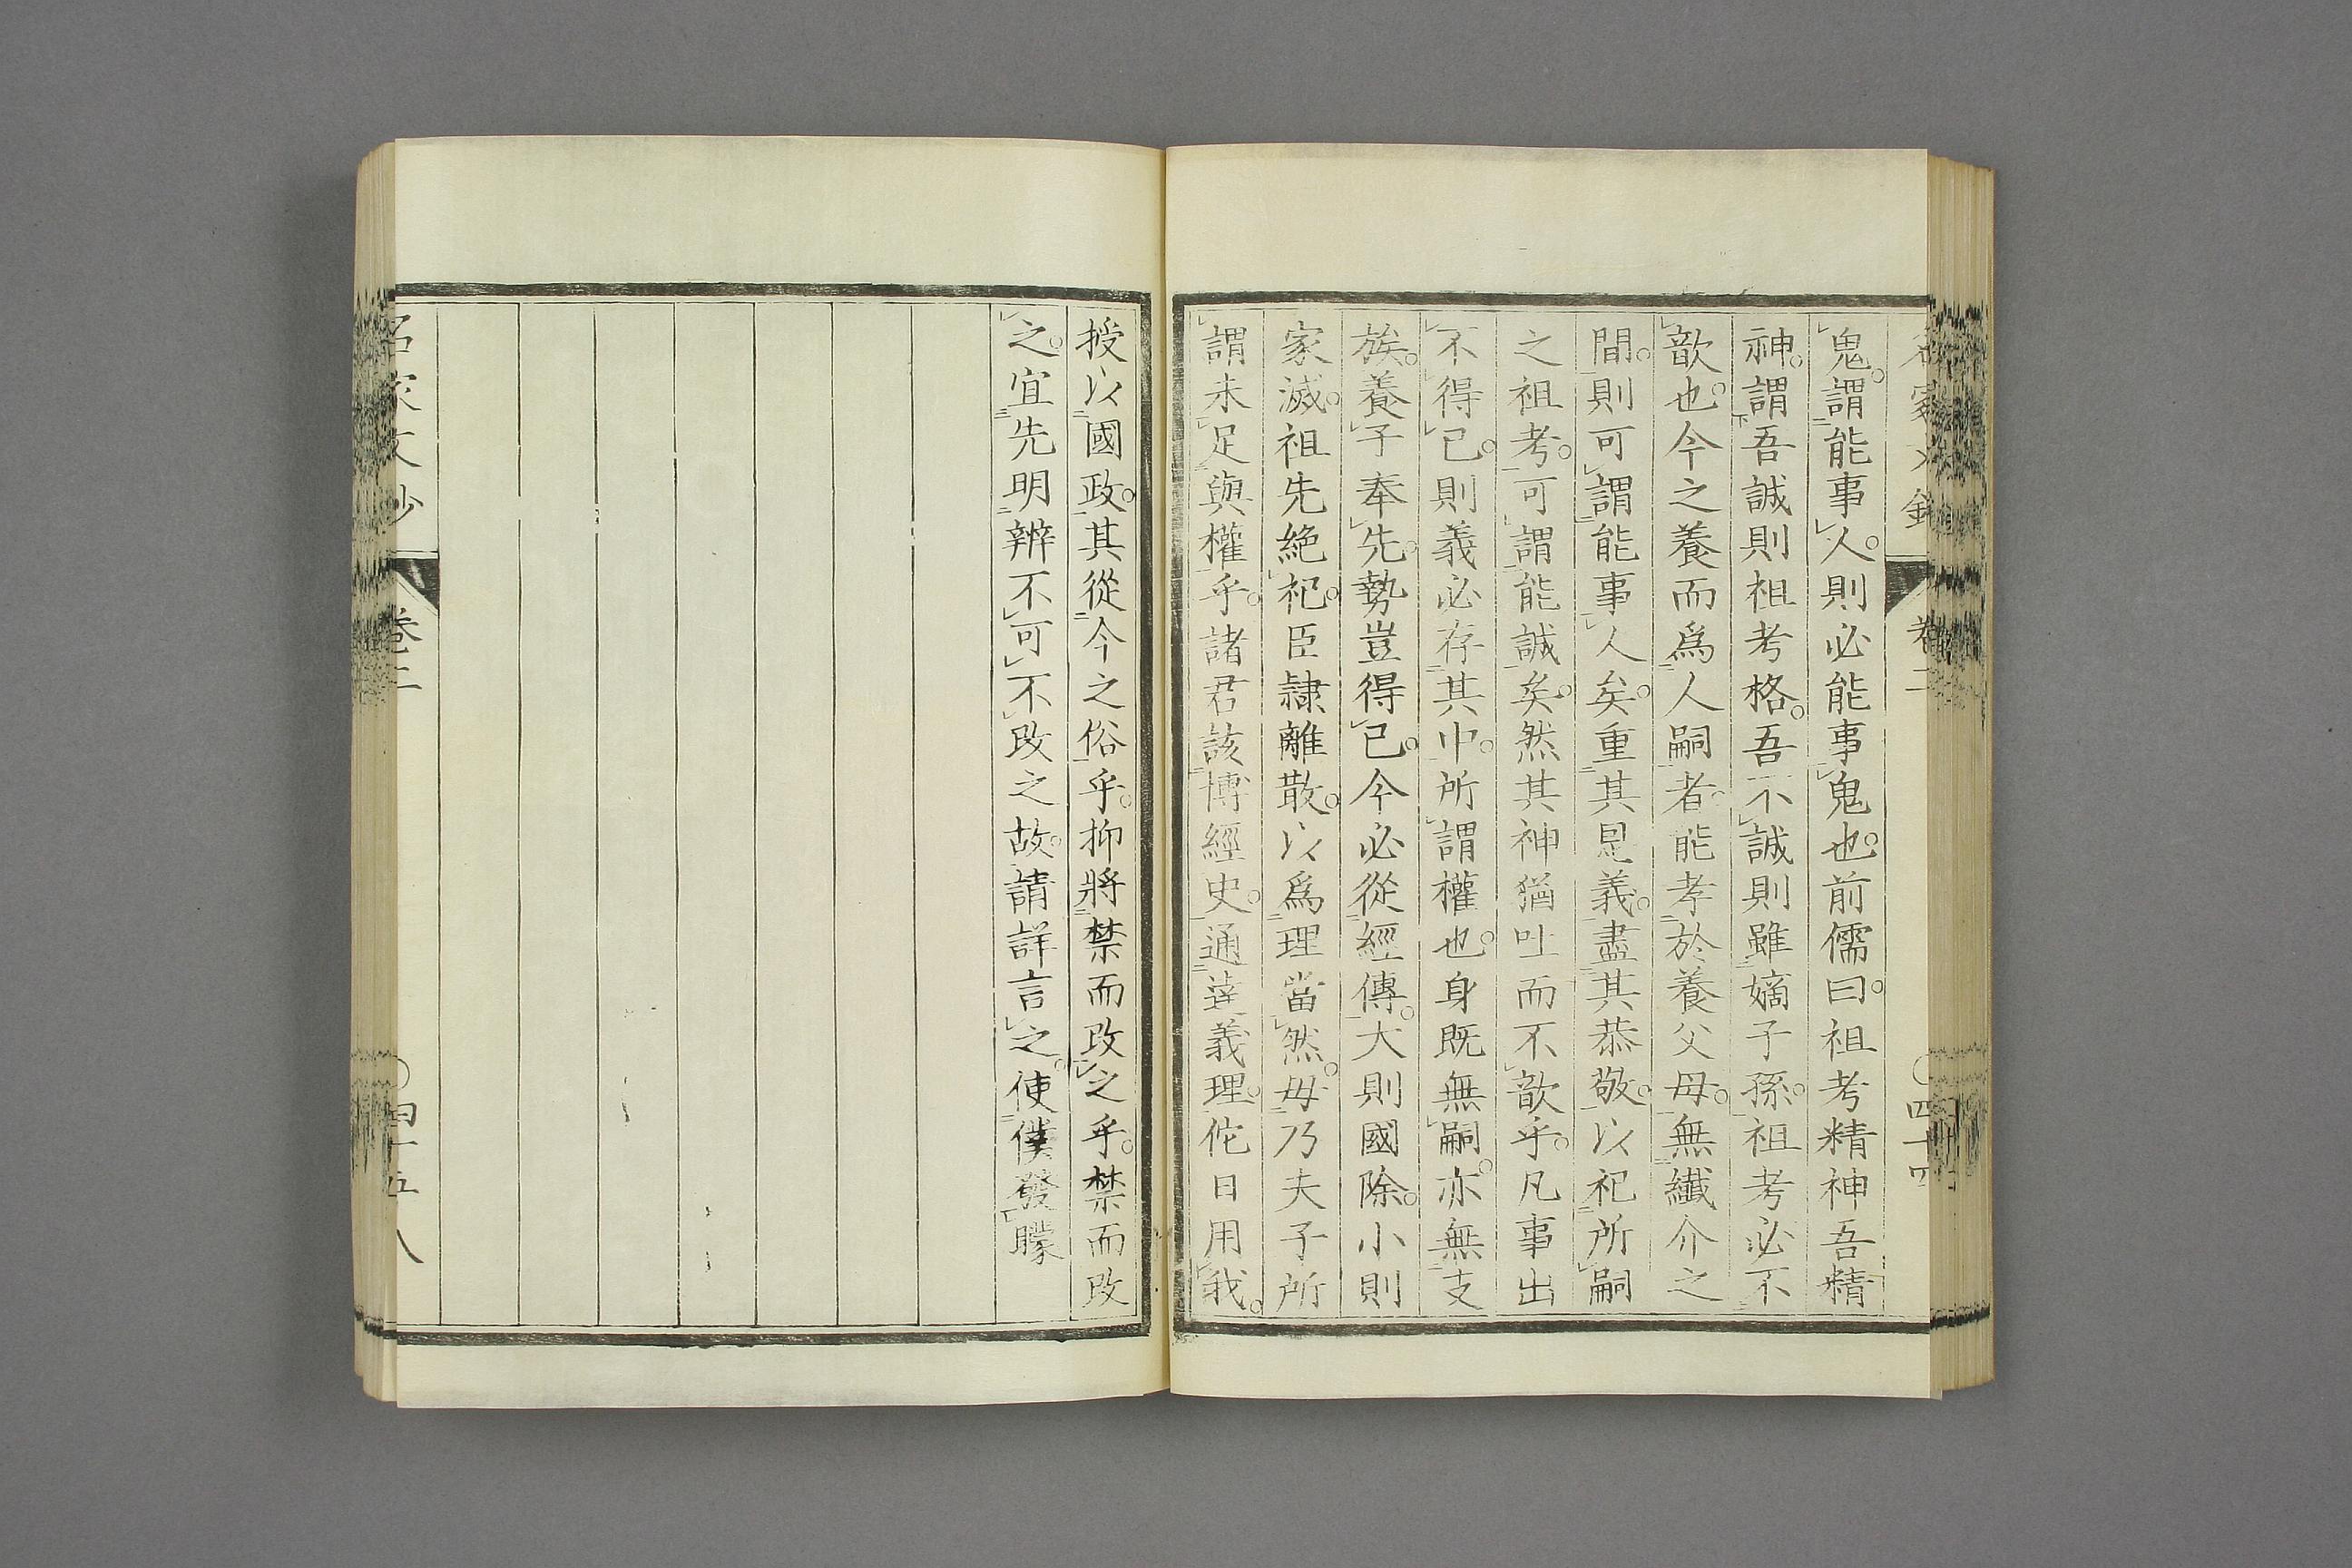 鬼。謂能事人。則必能事鬼也。前儒曰。祖考精神吾精
神。謂吾誠則祖考格。吾不誠則雖嫡子孫。祖考必不
歆也。今之養而爲人嗣者。能孝於養父母。無纖介之
間。則可謂能事人矣。重其恩義。盡其恭敬。以祀所嗣
之祖考。可謂能誠矣。然其神猶吐而不歆乎。凡事出
不得已。則義必存其中。所謂權也。身既無嗣。亦無支
族。養子奉先。勢豈得已。今必從經傳。大則國除。小則
家滅。祖先絶祀。臣隷離散。以爲理當然。毋乃夫子所
謂未足與權乎。諸君該博經史。通達義理。佗日用我。
授以國政。其從今之俗乎。抑將禁而改之乎。禁而改
之。宜先明辨不可不改之故。請詳言之。使僕發矇
名家文鈔
卷二
四十五
八